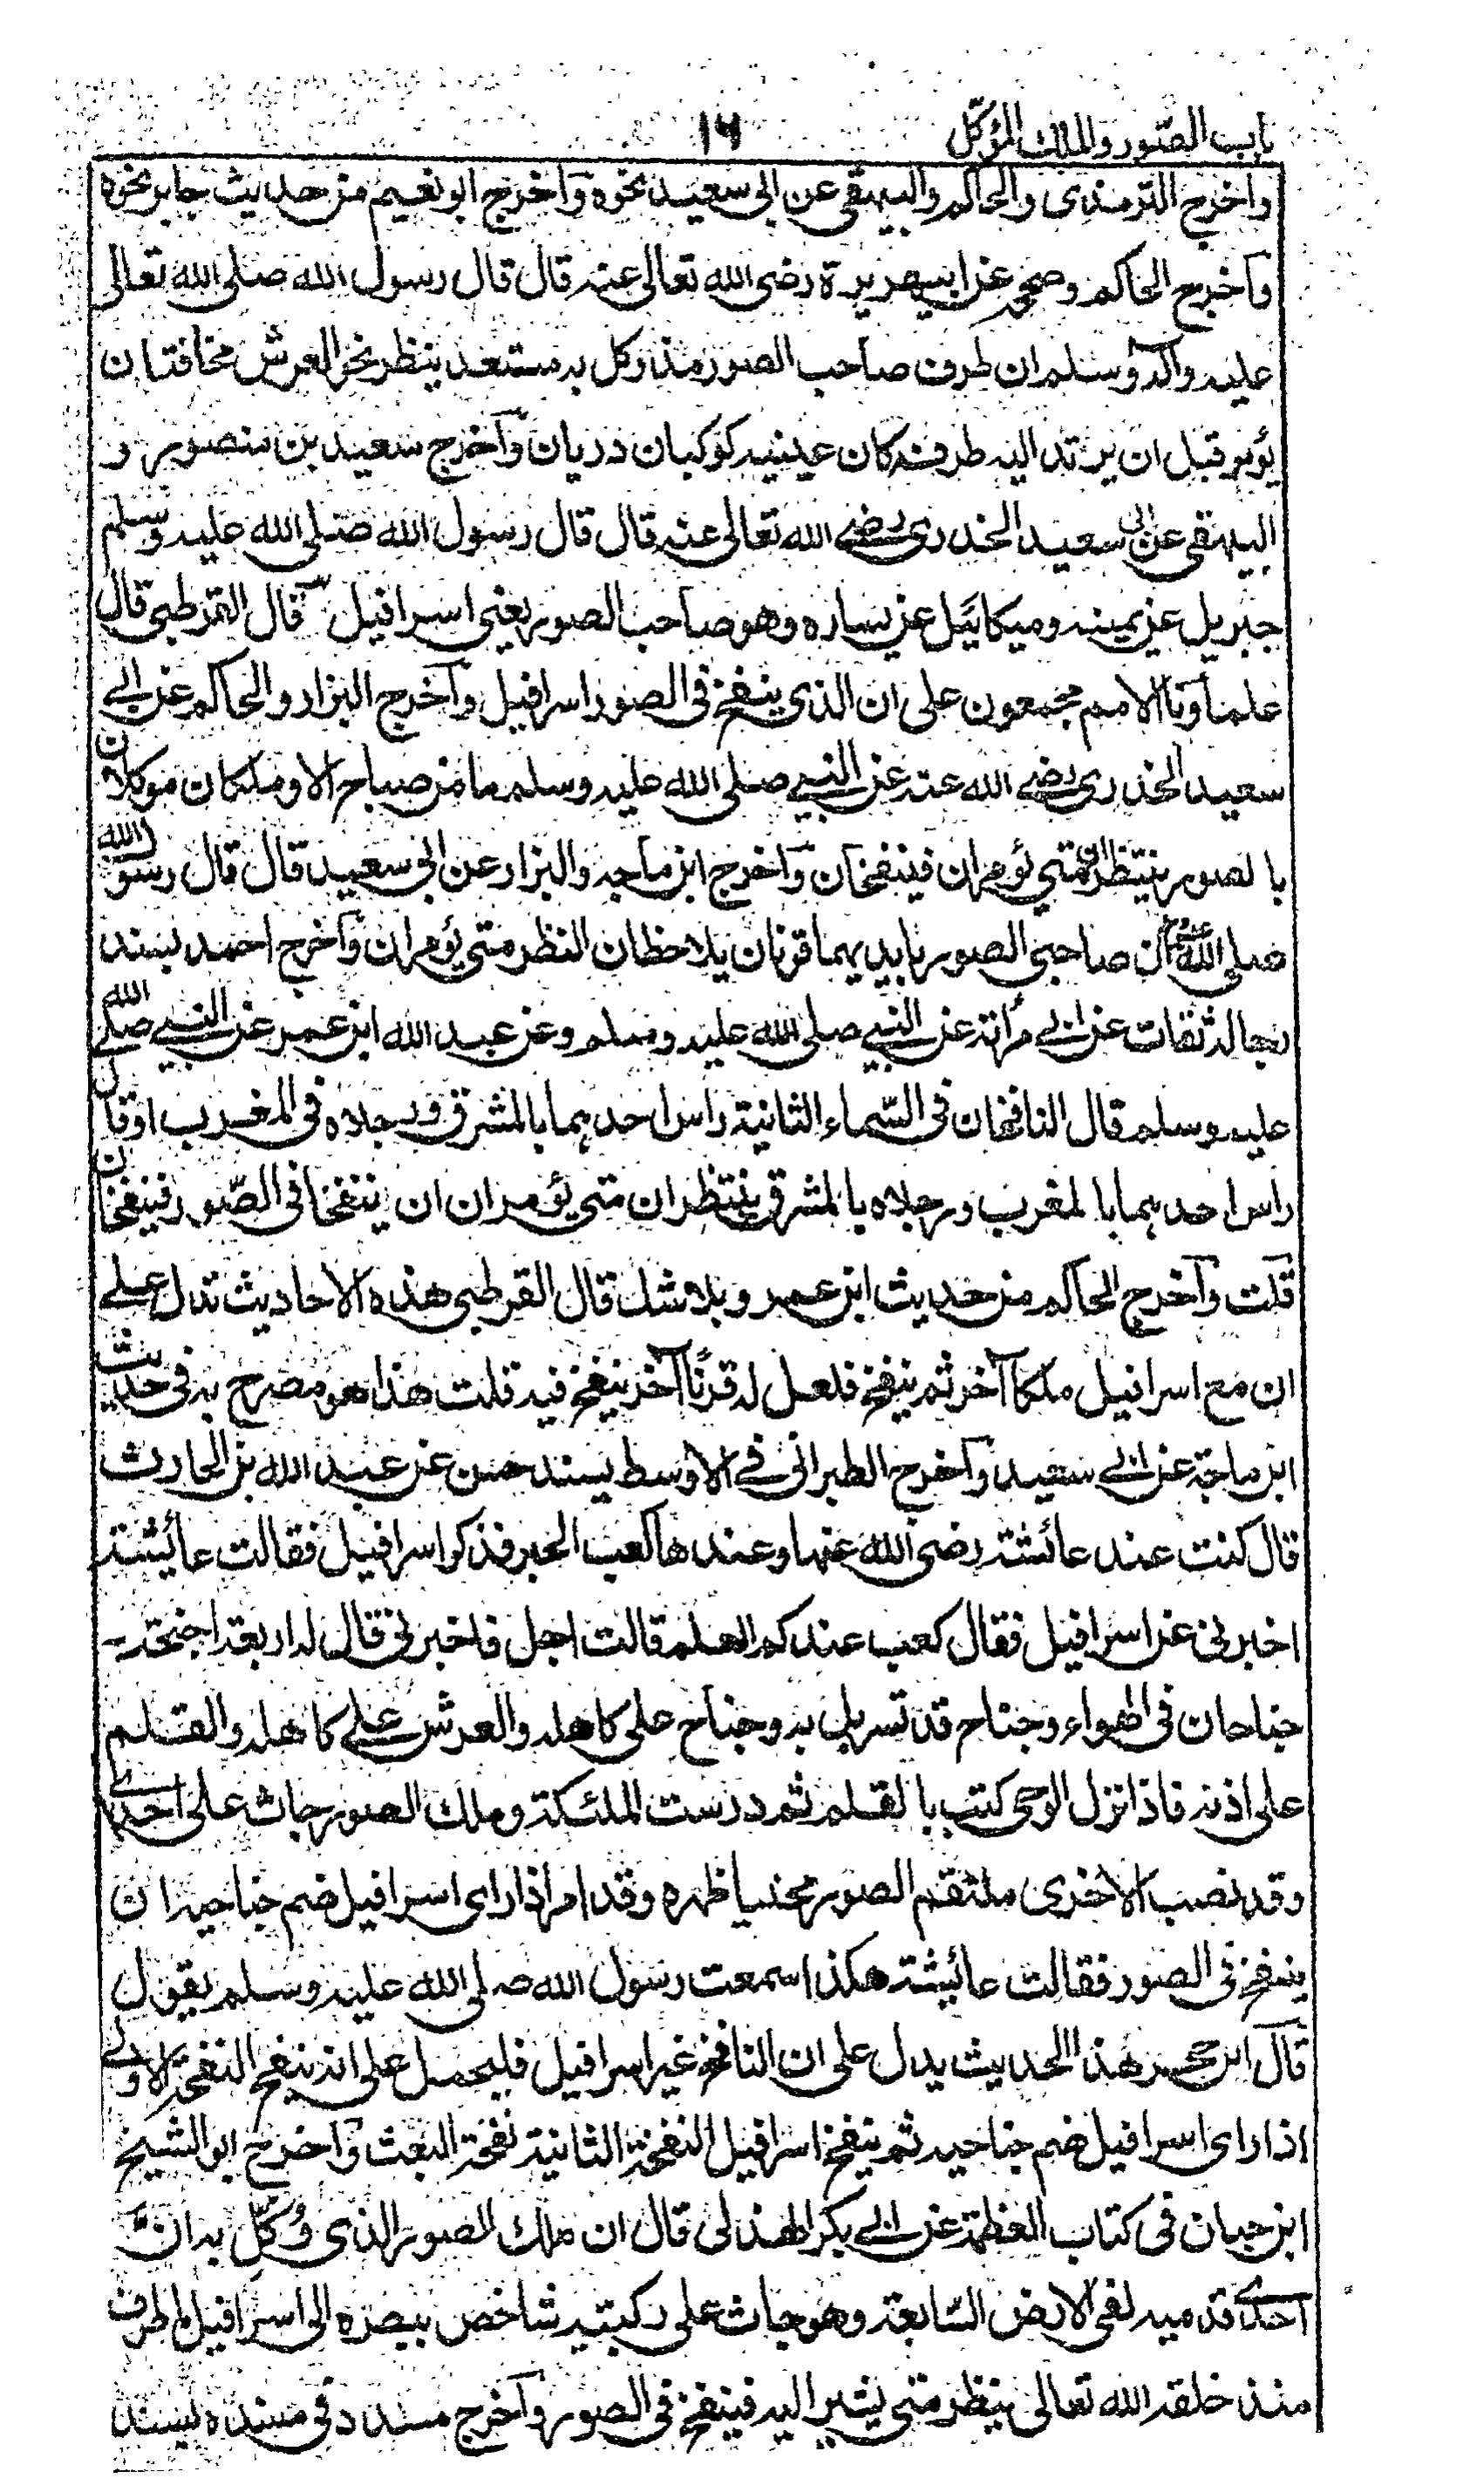 باب الصّور والملك المؤكّل
١٦
واخرج الترمذى والحاكم والبيهقى عن ابى سعيد نحوه وَاخرج ابو نعيم من حديث جابر نحوه
وآخرج الحاكم وصححه عن ابيهريرة رضى الله تعالى عنه قال قال رسول الله صلى الله تعالى
عليه وآله وسلم ان طرف صاحب الصور مذ وكل به مستعد ينظر نحو العرش مخافة ان
يؤمر قبل ان يرتد اليه طرفه كان عينيه كوكبان دريان وآخرج سعيد بن منصور و
البيهقى عن ابى سعيد الخدرى رضے الله تعالى عنه قال قال رسول الله صلى الله عليه وسلم
جبريل عن يمينه وميكائيل عن يساره وهو صاحب الصور يعنى اسرافيل قال القرطبى قال
علماؤنا الامم مجمعون على ان الذى ينفخ فى الصور اسرافيل وآخرج البزار والحاكم عن ابے
سعيد الخدرى رضے الله عنه عن النبے صلى الله عليه وسلم ما من صباح الا وملكان موكلان
بالصور ينتظران متى يؤمران فينفخان وَآخرج ابن ماجه والبزار عن ابى سعيد قال قال رسول الله
صلى الله ان صاحبى الصور بايديهما قرنان يلاحظان النظر متى يؤمران وآخرج احمد بسند
رجاله ثقات عن ابے مُرأته عن النبے صلى الله عليه وسلم وعن عبد الله ابن عمر عن النبے صلے الله
عليه وسلم قال النافخان فى السّماء الثانية راس احدهما بالمشرق ورجلاه فى المغرب او قال
راس احدهما بالمغرب ورجلاه بالمشرق ينتظران متى يؤمران ان ينفخا فى الصّور فينفخان
قلت وآخرج الحاكم من حديث ابن عمر وبلاشك قال القرطبى هذه الاحاديث تدل علے
ان مع اسرافيل ملكا آخر ثم ينفخ فلعل له قرنًا آخر ينفخ فيه قلت هذا هو مصرح به فى حديث
ابن ماجة عن ابے سعيد وآخرج الطبرانى فے الاوسط بسند حسن عن عبد الله بن الحارث
قال كنت عند عائشة رضى الله عنها وعندها كعب الحبر فذكر اسرافيل فقالت عائشة
اخبرنى عن اسرافيل فقال كعب عندكم العلم قالت اجل فاخبرنى قال له اربعة اجنحة
جناحان فى الهواء وجناح قد تسربل به وجناح على كاهله والعرش علے كاهله والقلم
على اذنه فاذا نزل الوحى كتب بالقلم ثم درست الملئكة وملك الصور جاث على احدے
وقد نصب الاخرى ملتقم الصور محنيا ظهره وقد امر اذا راى اسرافيل ضم جناحيه ان
ينفخ فى الصور فقالت عائيشة هكذا سمعت رسول الله صلى الله عليه وسلم يقول
قآل ابن حجر هذا الحديث يدل على ان النافخ غير اسرافيل فليحمل على انه ينفخ النفخة الاولے
اذا راى اسرافيل ضم جناحيه ثم ينفخ اسرافيل النفخة الثانية نفخة البعث وآخرج ابو الشيخ
ابن حبان فى كتاب العظمة عن ابے بكر الهذلى قال ان ملك الصور الذى وُكّل به انّ
احدے قدميه لفى الارض السّابعة وهو جاث على ركبتيه شاخص ببصره الى اسرافيل ما طرف
منذ خلقه الله تعالى ينظر متى يشير اليه فينفخ فى الصور وآخرج مسدد فى مسنده بسند